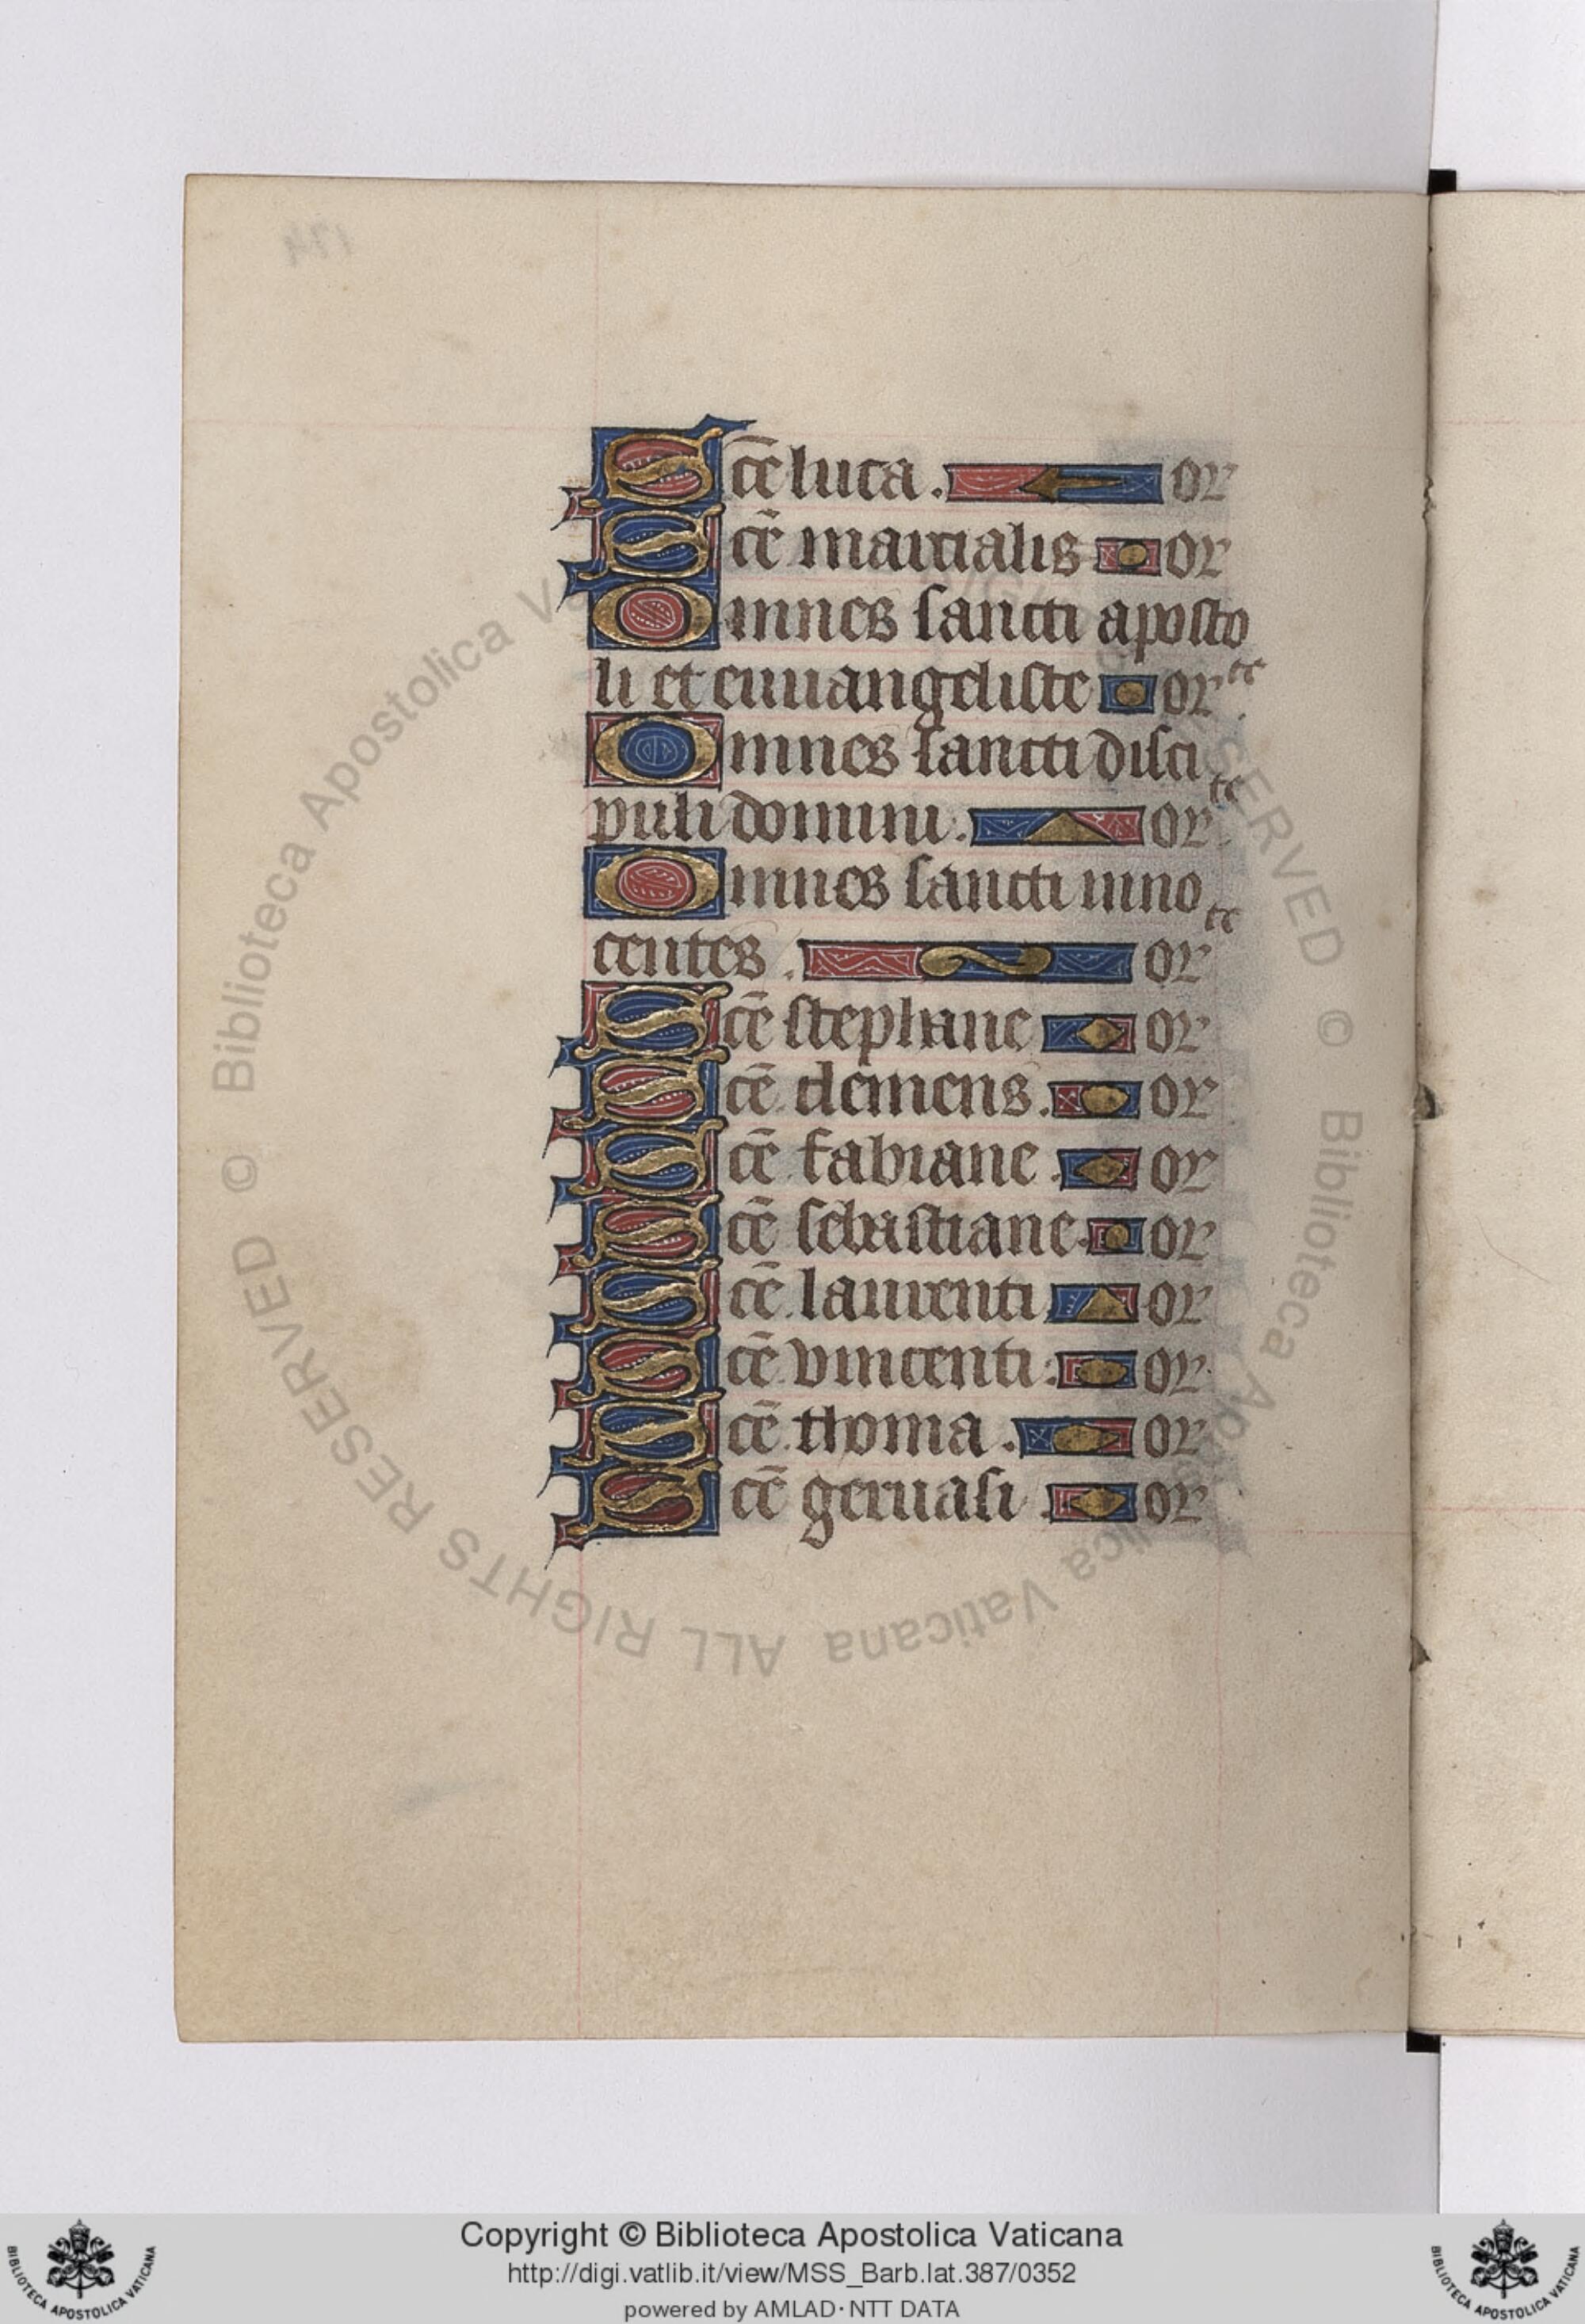 Sc̄e luca. or
Sc̄e marcialis or
Omnes sancti aposto
li et euuangeliste or te
Omnes sancti disci
puli domini. or te
Omnes sancti inno
centes. or te
Sc̄e stephane or
Sc̄e clemens. or
Sc̄e fabiane. or
Sc̄e sebastiane. or
Sc̄e laurenti. or
Sc̄e vincenti. or
Sc̄e thoma. or
Sc̄e geruasi. or
© Biblioteca Apostolica Vaticana ALL RIGHTS RESERVED
Copyright © Biblioteca Apostolica Vaticana
http://digi.vatlib.it/view/MSS_Barb.lat.387/0352
powered by AMLAD·NTT DATA
BIBLIOTECA APOSTOLICA VATICANA
BIBLIOTECA APOSTOLICA VATICANA